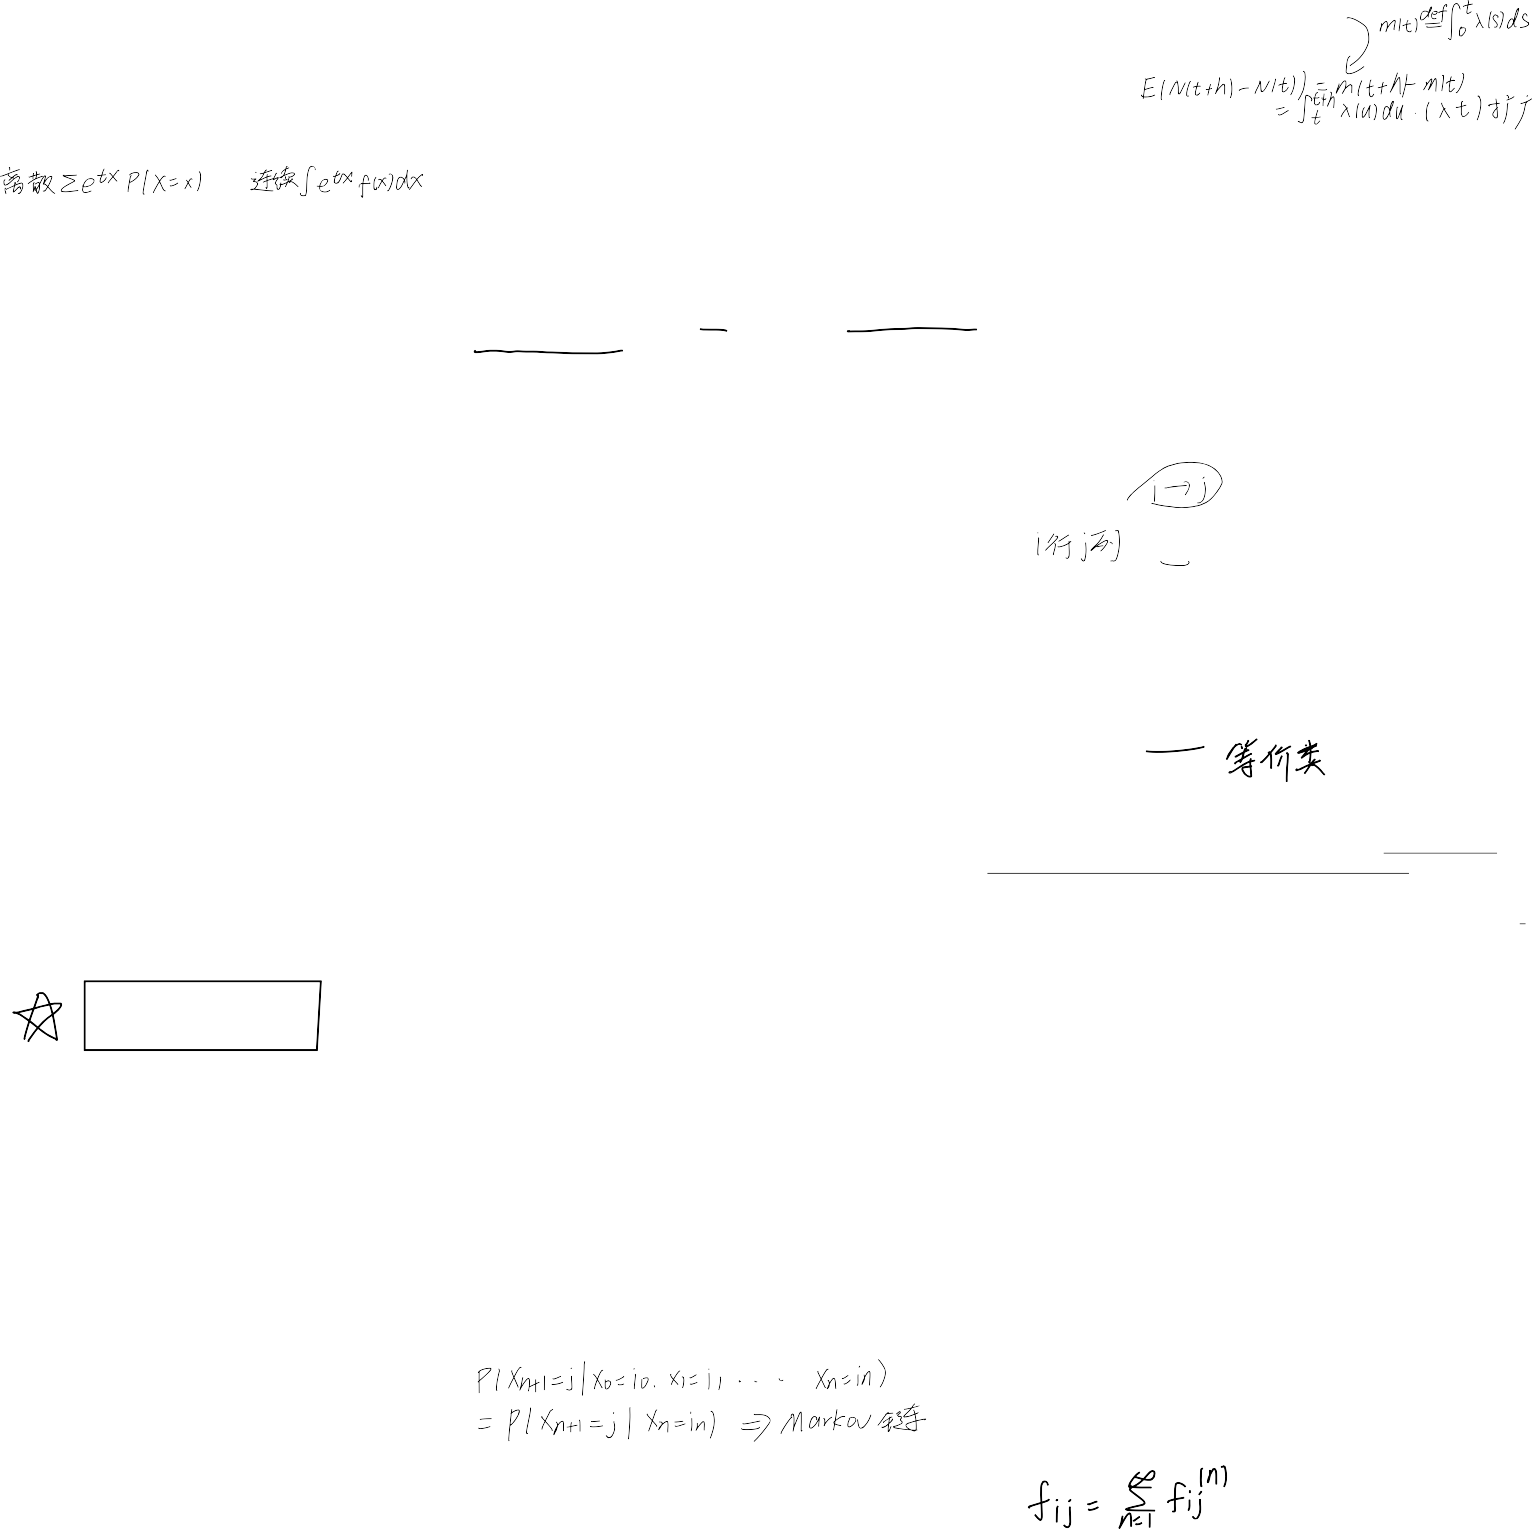 m(t) def= ∫₀ᵗ λ(s)ds
E(N(t+h)-N(t)) = m(t+h)-m(t)
= ∫ₜᵗ⁺ʰ λ(u)du. (λt)
离散 Σe^{tx} P(X=x) 连续 ∫e^{tx} f(x)dx
i→j
i行j列
等价类
P(X_{n+1}=j|X_0=i_0, X_1=i_1, ... X_n=i_n)
= P(X_{n+1}=j|X_n=i_n) ⇒ Markov链
f_{ij} = Σ_{n=1}^{∞} f_{ij}^{(n)}